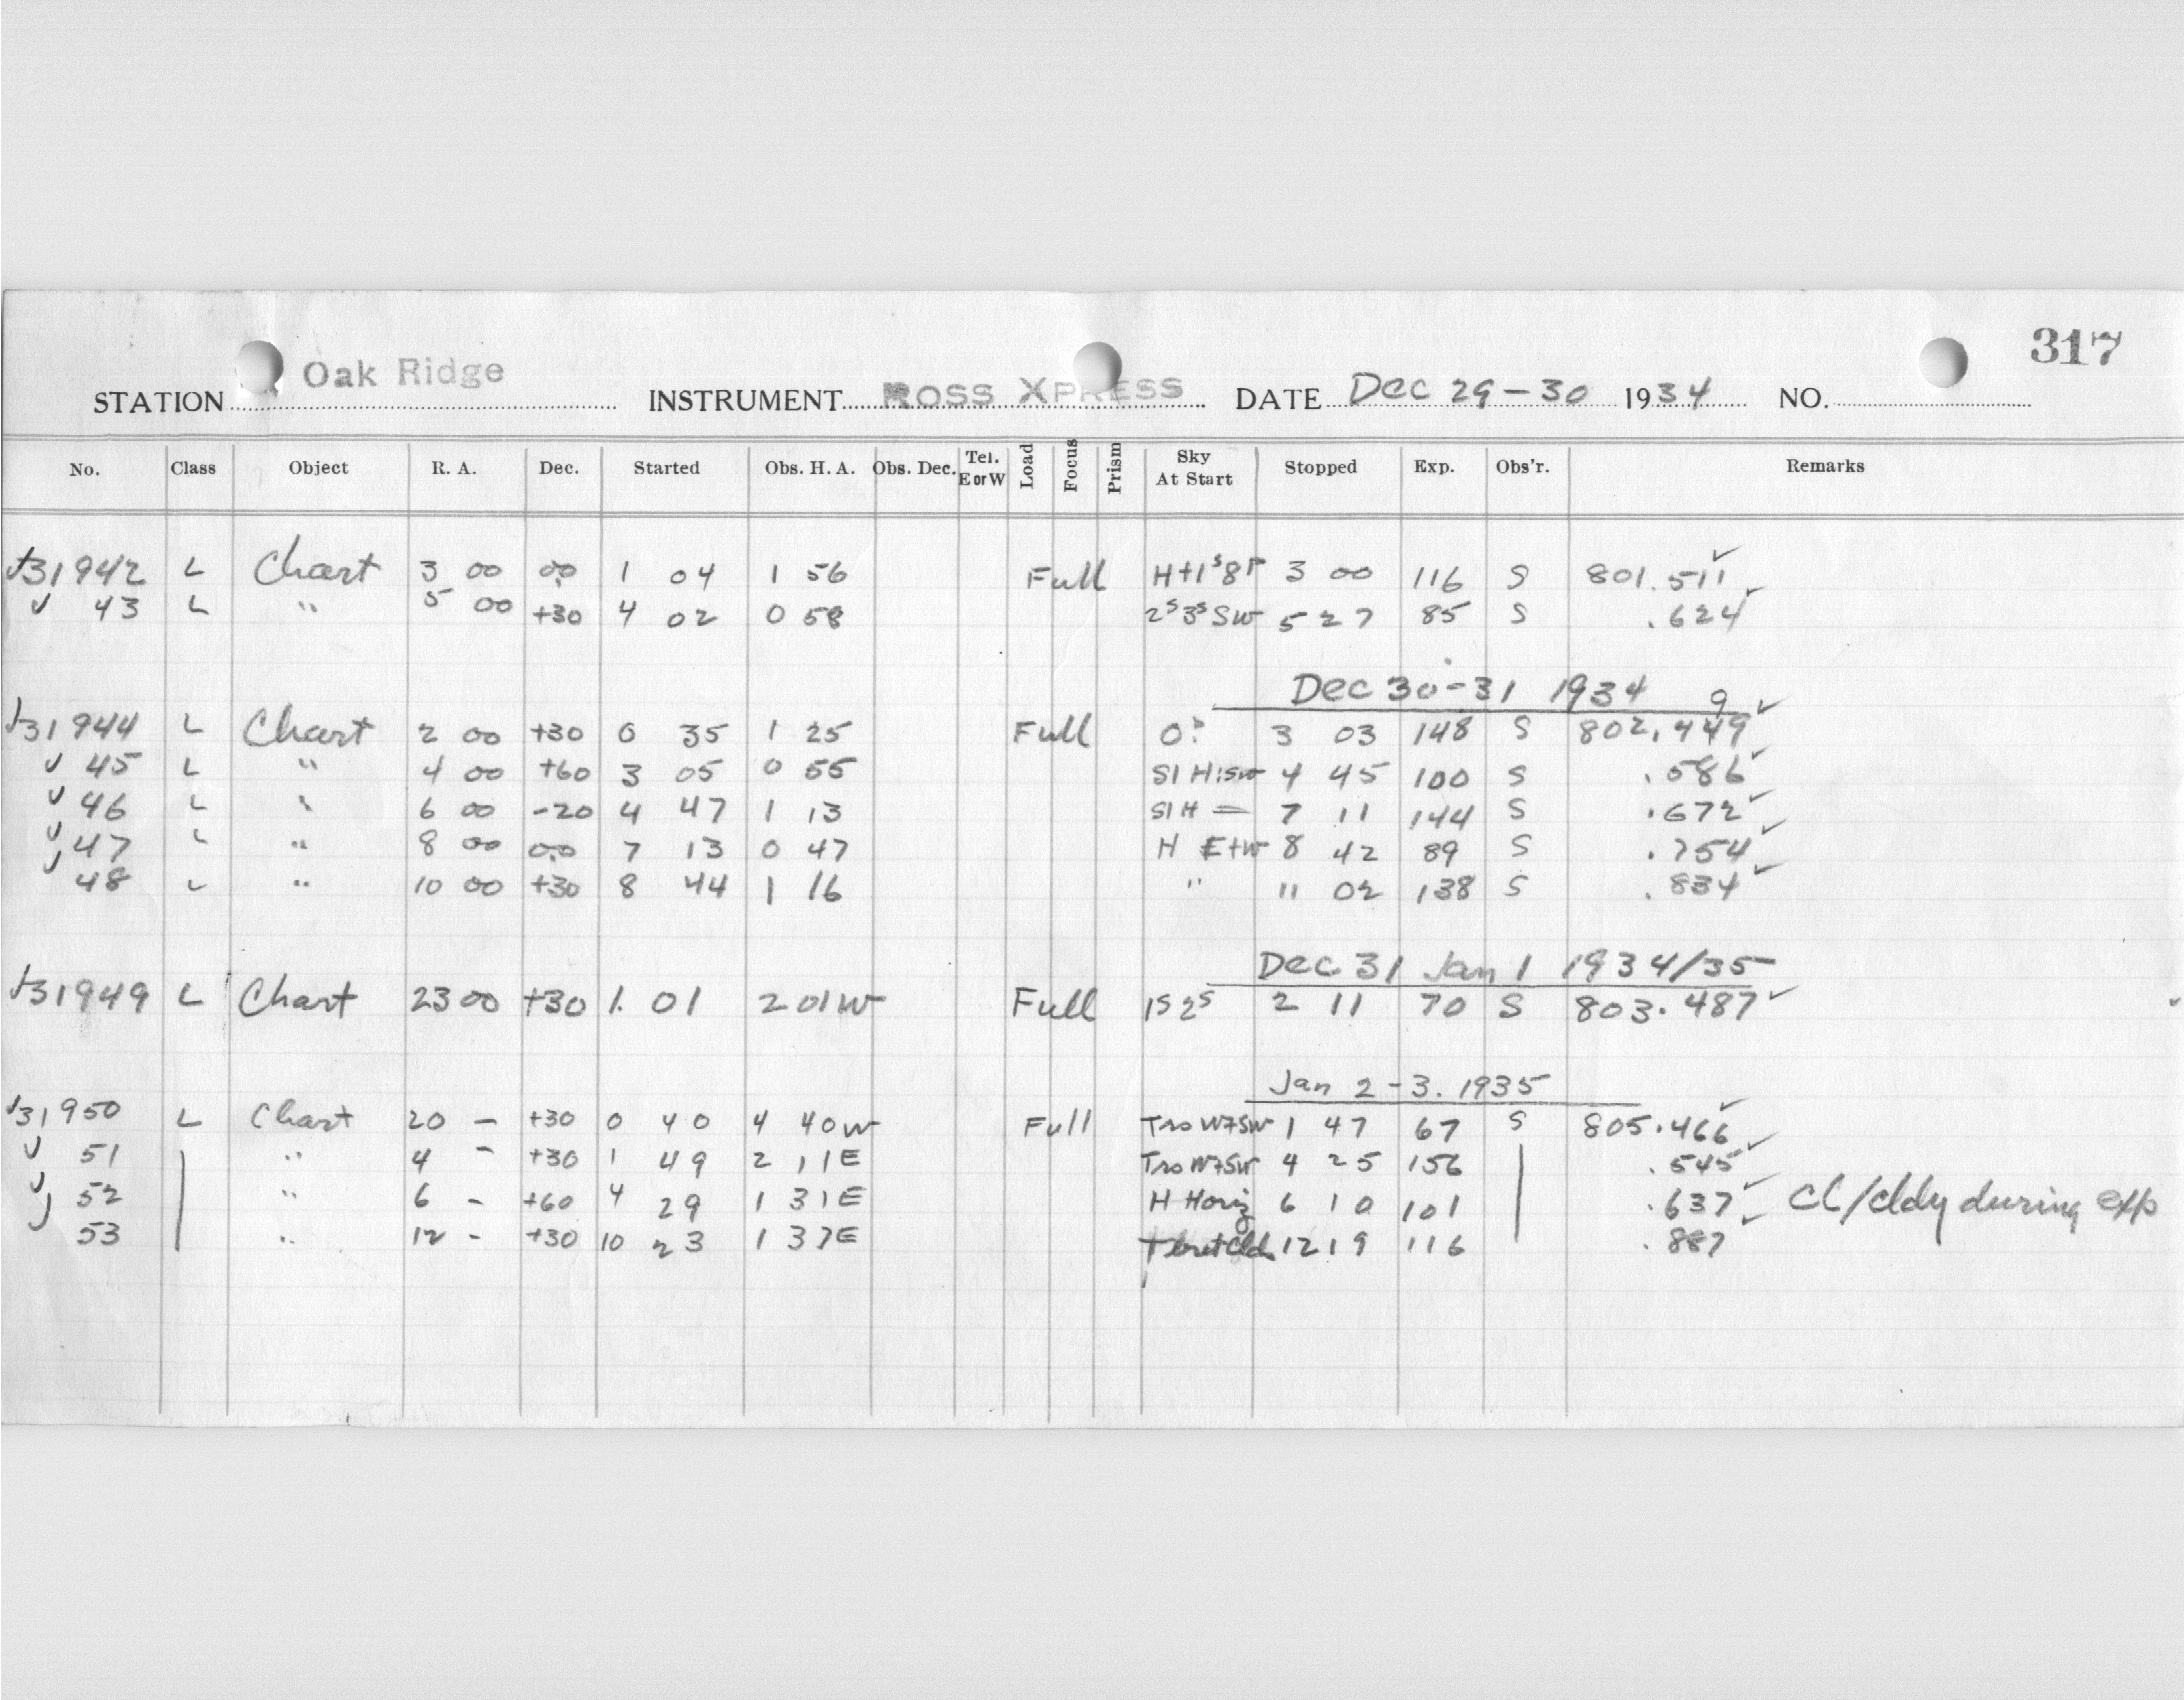 317
STATION Oak Ridge INSTRUMENT ROSS XPRESS DATE Dec 29-30 1934 NO.
No. Class Object R. A. Dec. Started Obs. H. A. Obs. Dec. Tel. E or W Load Focus Prism Sky At Start Stopped Exp. Obs'r. Remarks
31942 L Chart 3 00 00 1 04 1 56 Full 3 00 116 S 801.511
43 L " 5 00 +30 4 02 0 58 2s3s SW 5 27 85 S .624
Dec 30-31 1934
31944 L Chart 2 00 +30 0 35 1 25 Full 3 03 148 S 802.449 9
45 L " 4 00 +60 3 05 0 55 Sl H:SW 4 45 100 S .586
46 L " 6 00 -20 4 47 1 13 Sl H = 7 11 144 S .672
47 L " 8 00 00 7 13 0 47 H E+W 8 42 89 S .754
48 L " 10 00 +30 8 44 1 16 " 11 02 138 S .834
Dec 31 Jan 1 1934/35
31949 L Chart 23 00 +30 1 01 2 01W Full 1s 2s 2 11 70 S 803.487
Jan 2-3. 1935
31950 L Chart 20 - +30 0 40 4 40W Full 1 47 67 S 805.466
51 " 4 - +30 1 49 2 11E 4 25 156 .545
52 " 6 - +60 4 29 1 31E H Horiz 6 10 101 .637 Cl/cldy during exp
53 " 12 - +30 10 23 1 37E 12 19 116 .887